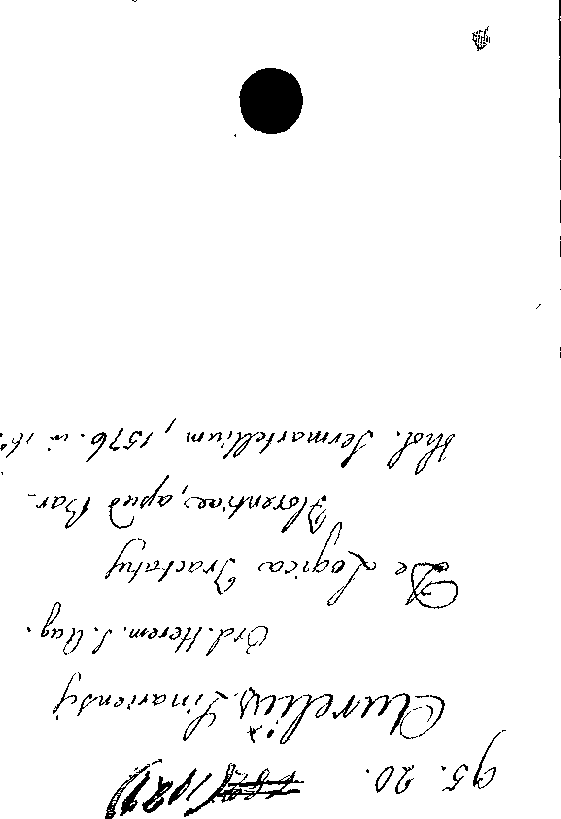 95. 20.
Aurelius Linariensis
Ord. Herem. S. Aug.
De Logica Tractatus
Florentiae, apud Bar-
thol. Sermartellium, 1576. in 16°